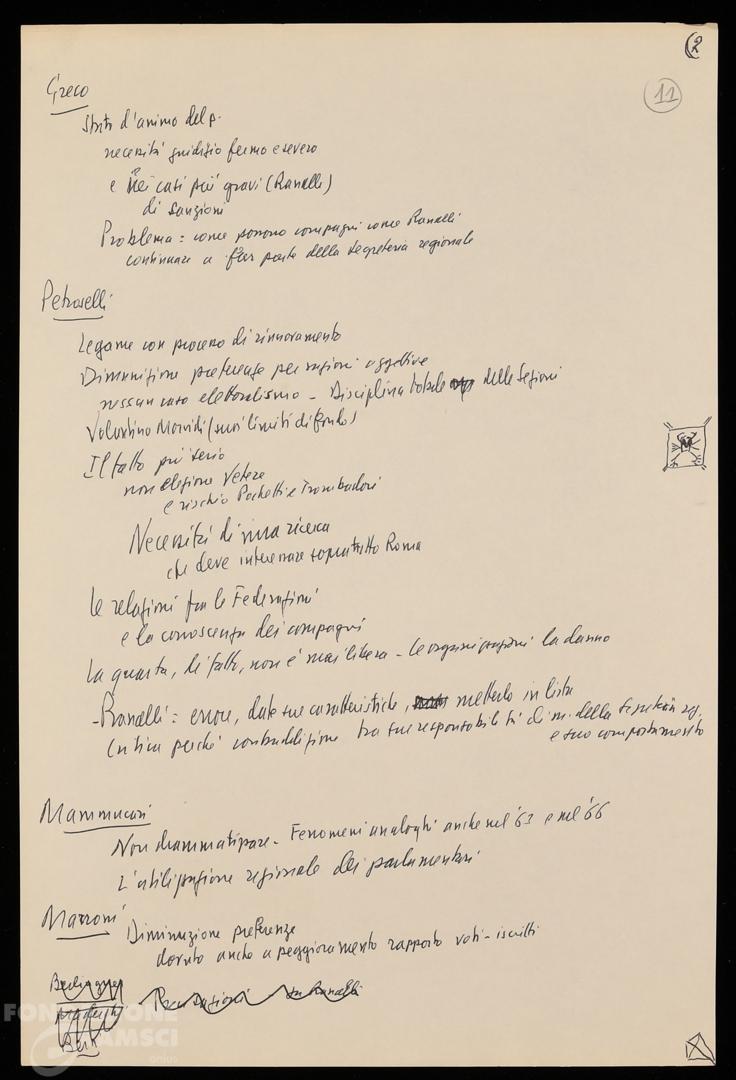 (2
11
Greco
Stato d'animo del p.
necessità giudizio fermo e severo
e nei casi più gravi (Ranalli)
di sanzioni
Problema: come possono compagni come Ranalli
continuare a far parte della segreteria regionale
Petroselli
Legame con processo di rinnovamento
Diminuzione preferenze per ragioni oggettive
nessun caso elettoralismo - Disciplina totale delle sezioni
Valentino Morvidi (suoi limiti di fondo)
Il fatto più serio
non elezione Vetere
e rischio Pochetti e Trombadori
Necessità di una ricerca
che deve interessare soprattutto Roma
Le relazioni fra le Federazioni
e la conoscenza dei compagni
La quarta, di fatto, non è mai libera - le organizzazioni la danno
- Ranalli: errore, date sue caratteristiche, metterlo in lista
Critica perché contraddizione tra sue responsabilità di m. della segreteria reg.
e suo comportamento
Mammucari
Non drammatizzare - Fenomeni analoghi anche nel '63 e nel '66
L'utilizzazione regionale dei parlamentari
Marroni
Diminuzione preferenze
dovuto anche a peggioramento rapporto voti - iscritti
Berlinguer
su Ranalli
FONDAZIONE
GRAMSCI
onlus